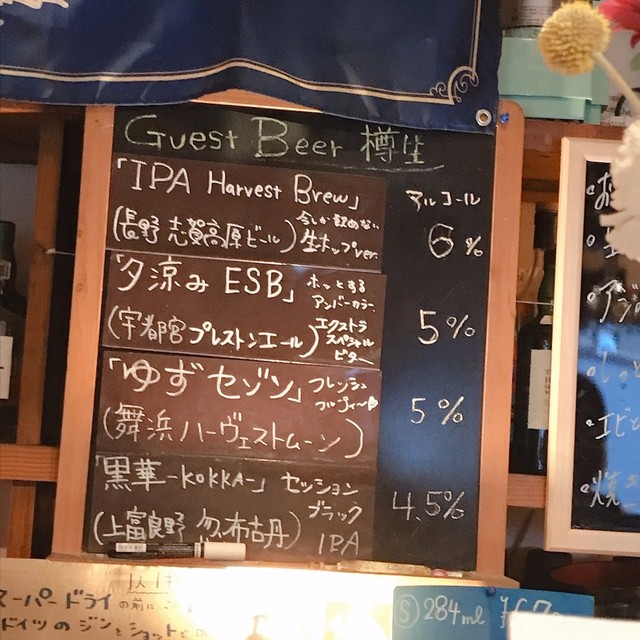 Guest Beer 樽生
「IPA Harvest Brew」
アルコール
(長野 志賀高原ビール)
今しか飲めない
生ホップver.
6%
「夕涼み ESB」
ホッとする
アンバーカラー
(宇都宮 プレストンエール)
エクストラ
スペシャル
ビター
5%
「ゆず セゾン」
フレッシュ
フルーティー
(舞浜 ハーヴェストムーン)
5%
「黒華-KOKKA-」
セッション
ブラック
IPA
(上富良野 忽布古丹)
4.5%
スーパードライ の前に
ドイツのジンとショット
Ⓢ 284ml
アジ
エビ
焼